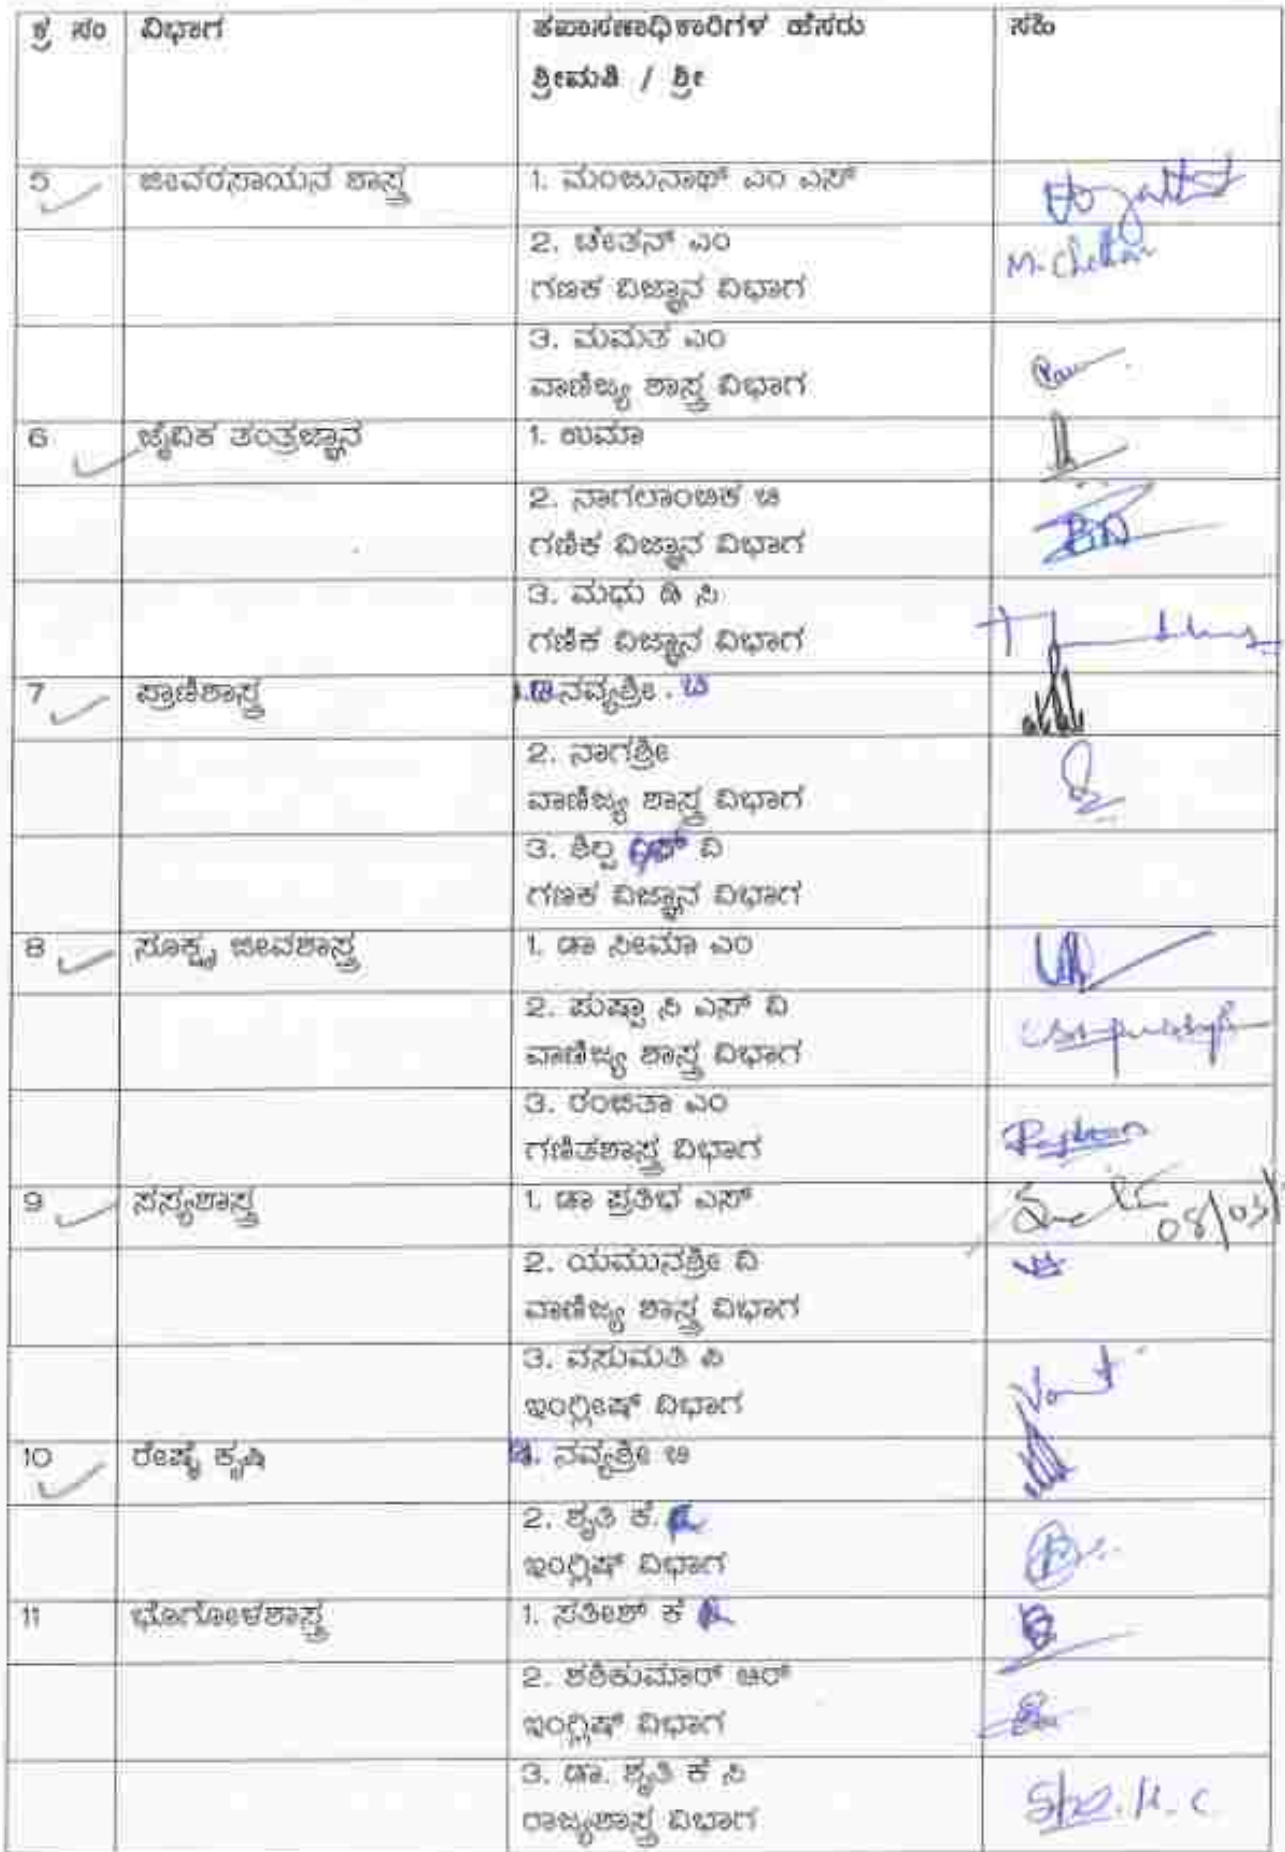 ಕ್ರ ಸಂ ವಿಭಾಗ ತಪಾಸಣಾಧಿಕಾರಿಗಳ ಹೆಸರು ಸಹಿ
ಶ್ರೀಮತಿ / ಶ್ರೀ
5 ಜೀವರಸಾಯನ ಶಾಸ್ತ್ರ 1. ಮಂಜುನಾಥ್ ಎಂ ಎಸ್
2. ಚೇತನ್ ಎಂ M. Chethan
ಗಣಕ ವಿಜ್ಞಾನ ವಿಭಾಗ
3. ಮಮತ ಎಂ
ವಾಣಿಜ್ಯ ಶಾಸ್ತ್ರ ವಿಭಾಗ
6 ಜೈವಿಕ ತಂತ್ರಜ್ಞಾನ 1. ಉಮಾ
2. ನಾಗಲಾಂಬಿಕ ಬಿ
ಗಣಿಕ ವಿಜ್ಞಾನ ವಿಭಾಗ
3. ಮಧು ಡಿ ಸಿ
ಗಣಿಕ ವಿಜ್ಞಾನ ವಿಭಾಗ
7 ಪ್ರಾಣಿಶಾಸ್ತ್ರ ನವ್ಯಶ್ರೀ . ಬಿ
2. ನಾಗಶ್ರೀ
ವಾಣಿಜ್ಯ ಶಾಸ್ತ್ರ ವಿಭಾಗ
3. ಶಿಲ್ಪ ವಿ
ಗಣಕ ವಿಜ್ಞಾನ ವಿಭಾಗ
8 ಸೂಕ್ಷ್ಮ ಜೀವಶಾಸ್ತ್ರ 1. ಡಾ ಸೀಮಾ ಎಂ
2. ಪುಷ್ಪಾ ಸಿ ಎಸ್ ವಿ
ವಾಣಿಜ್ಯ ಶಾಸ್ತ್ರ ವಿಭಾಗ
3. ರಂಜಿತಾ ಎಂ
ಗಣಿತಶಾಸ್ತ್ರ ವಿಭಾಗ
9 ಸಸ್ಯಶಾಸ್ತ್ರ 1. ಡಾ ಪ್ರತಿಭ ಎಸ್ 08/03/
2. ಯಮುನಶ್ರೀ ವಿ
ವಾಣಿಜ್ಯ ಶಾಸ್ತ್ರ ವಿಭಾಗ
3. ವಸುಮತಿ ಪಿ
ಇಂಗ್ಲೀಷ್ ವಿಭಾಗ
10 ರೇಷ್ಮೆ ಕೃಷಿ 1. ನವ್ಯಶ್ರೀ ಬಿ
2. ಶೃತಿ ಕೆ.
ಇಂಗ್ಲಿಷ್ ವಿಭಾಗ
11 ಭೊಗೋಳಶಾಸ್ತ್ರ 1. ಸತೀಶ್ ಕೆ
2. ಶಶಿಕುಮಾರ್ ಆರ್
ಇಂಗ್ಲಿಷ್ ವಿಭಾಗ
3. ಡಾ. ಶೃತಿ ಕೆ ಸಿ
ರಾಜ್ಯಶಾಸ್ತ್ರ ವಿಭಾಗ